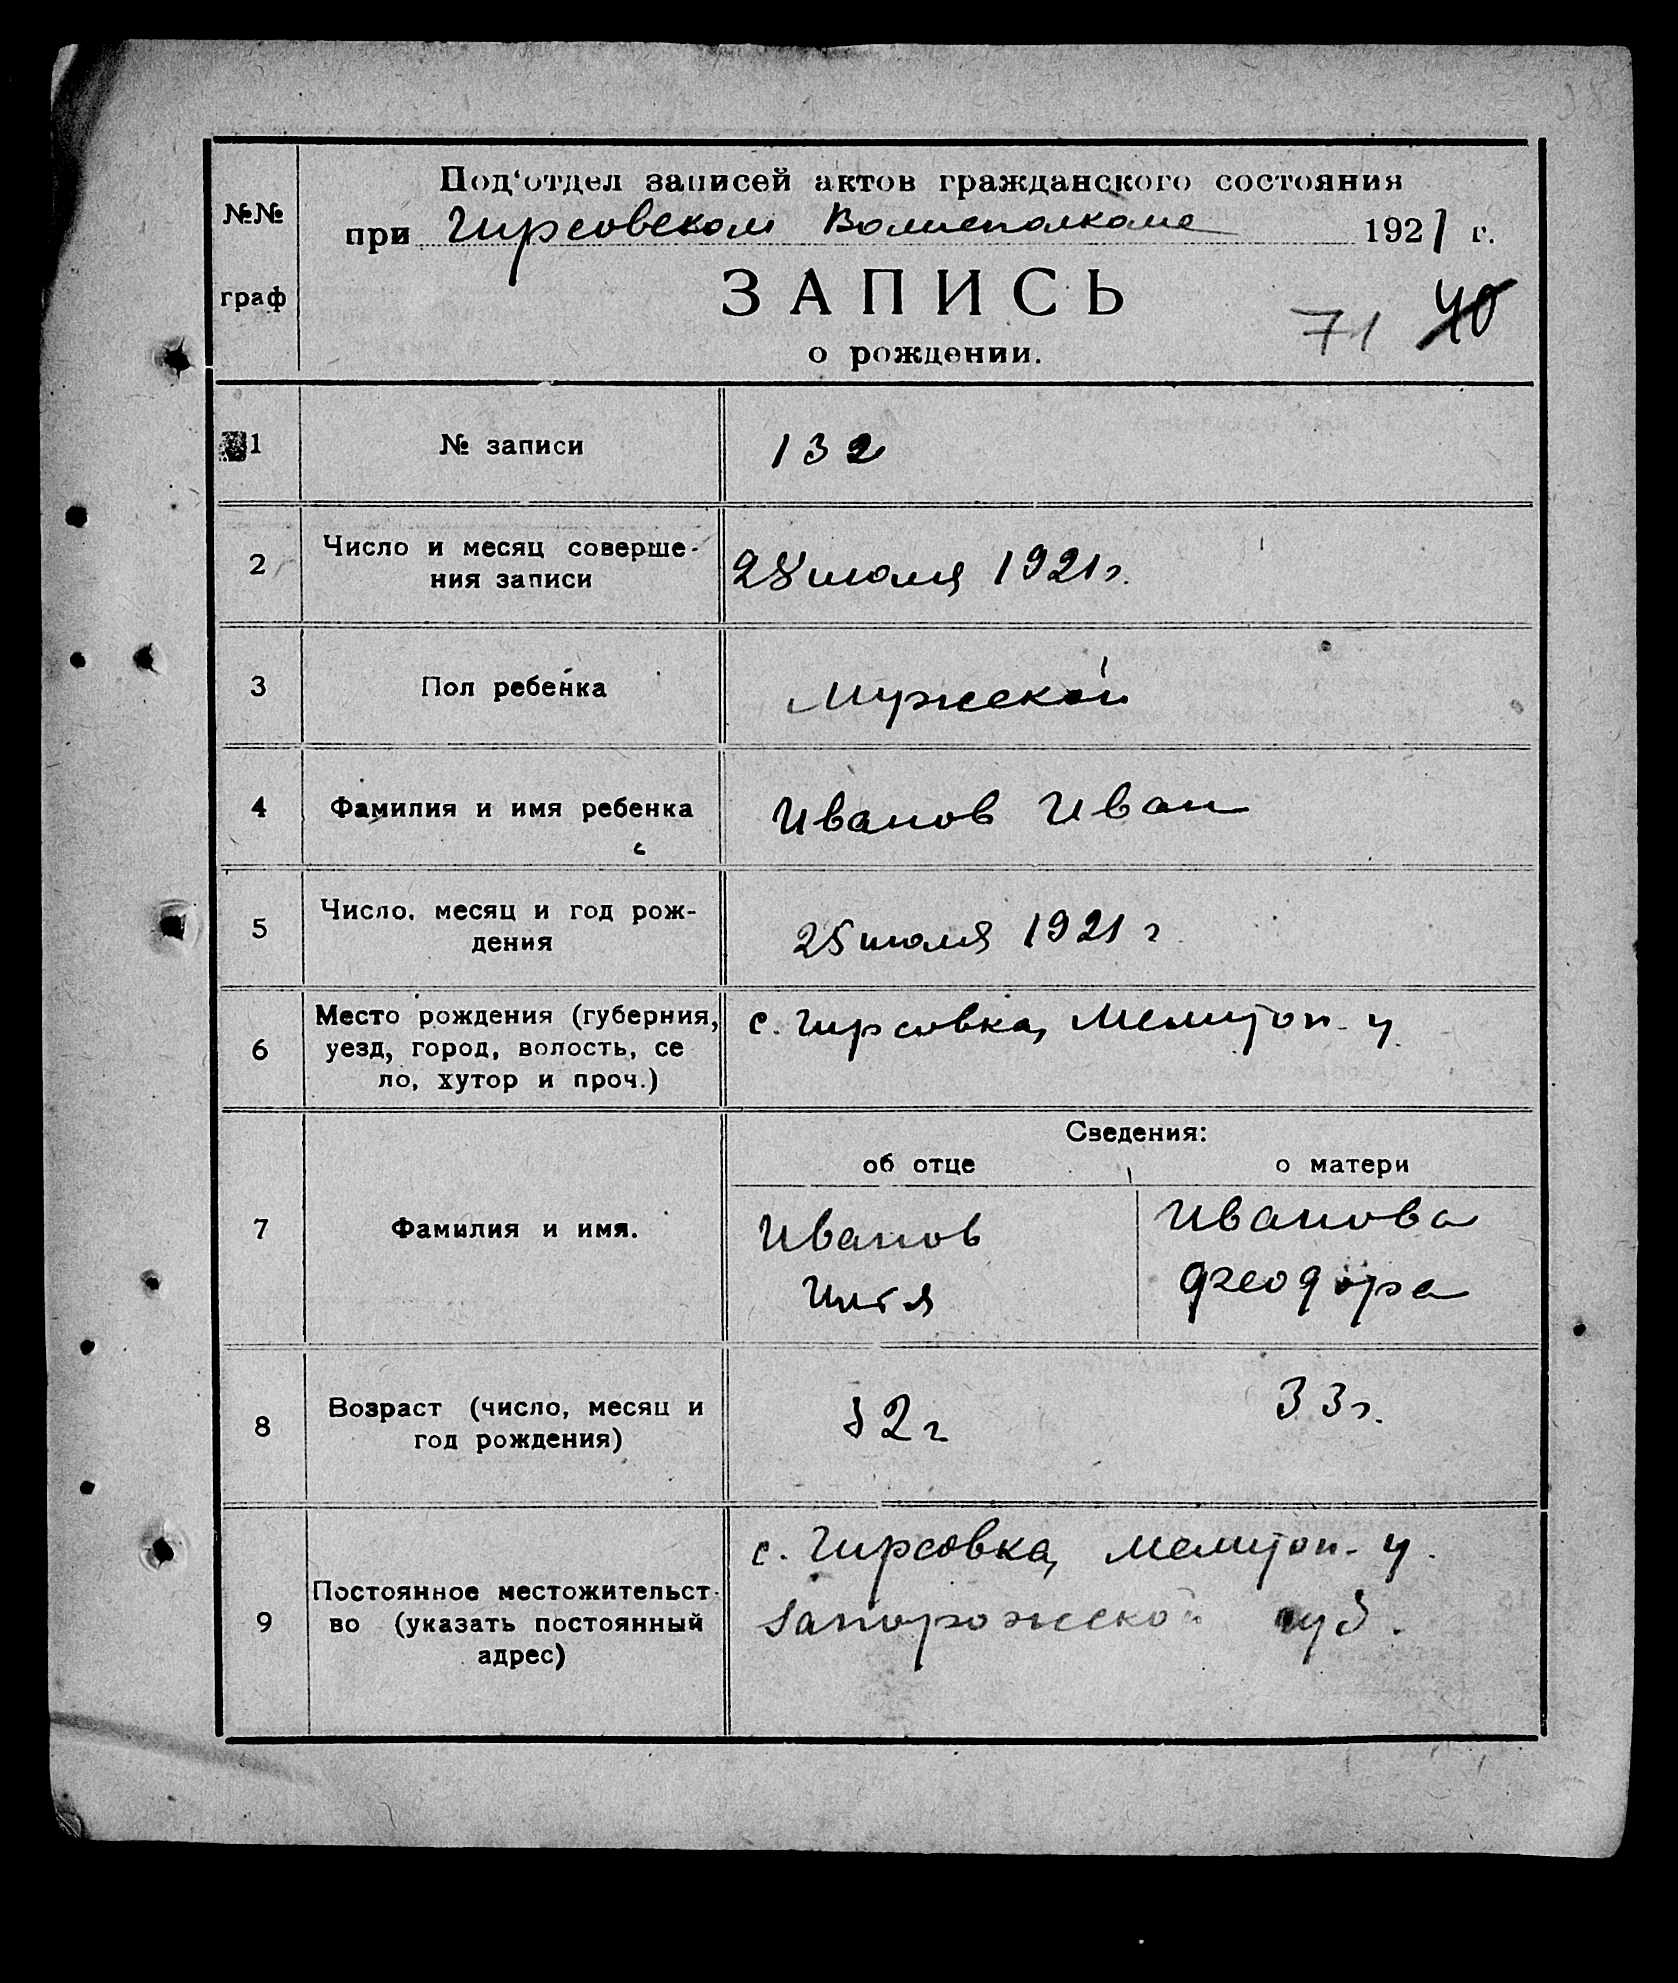 №№
граф
Под‘отдел записей актов гражданского состояния
при Гирсовском Волисполкоме 1921 г.
ЗАПИСЬ
71 40
о рождении.
1 № записи 132
2 Число и месяц соверше-
ния записи
28 июля 1921 г.
3 Пол ребенка Мужской
4 Фамилия и имя ребенка Иванов Иван
5 Число, месяц и год рож-
дения
25 июля 1921 г
6 Место рождения (губерния,
уезд, город, волость, се
ло, хутор и проч.)
с. Гирсовка, Мелитоп. у.
Сведения:
об отце о матери
7 Фамилия и имя.
Иванов
Илья
Иванова
Феодора
8 Возраст (число, месяц и
год рождения)
32 г
33 г.
9 Постоянное местожительст-
во (указать постоянный
адрес)
с. Гирсовка, Мелитоп. у.
Запорожской губ.